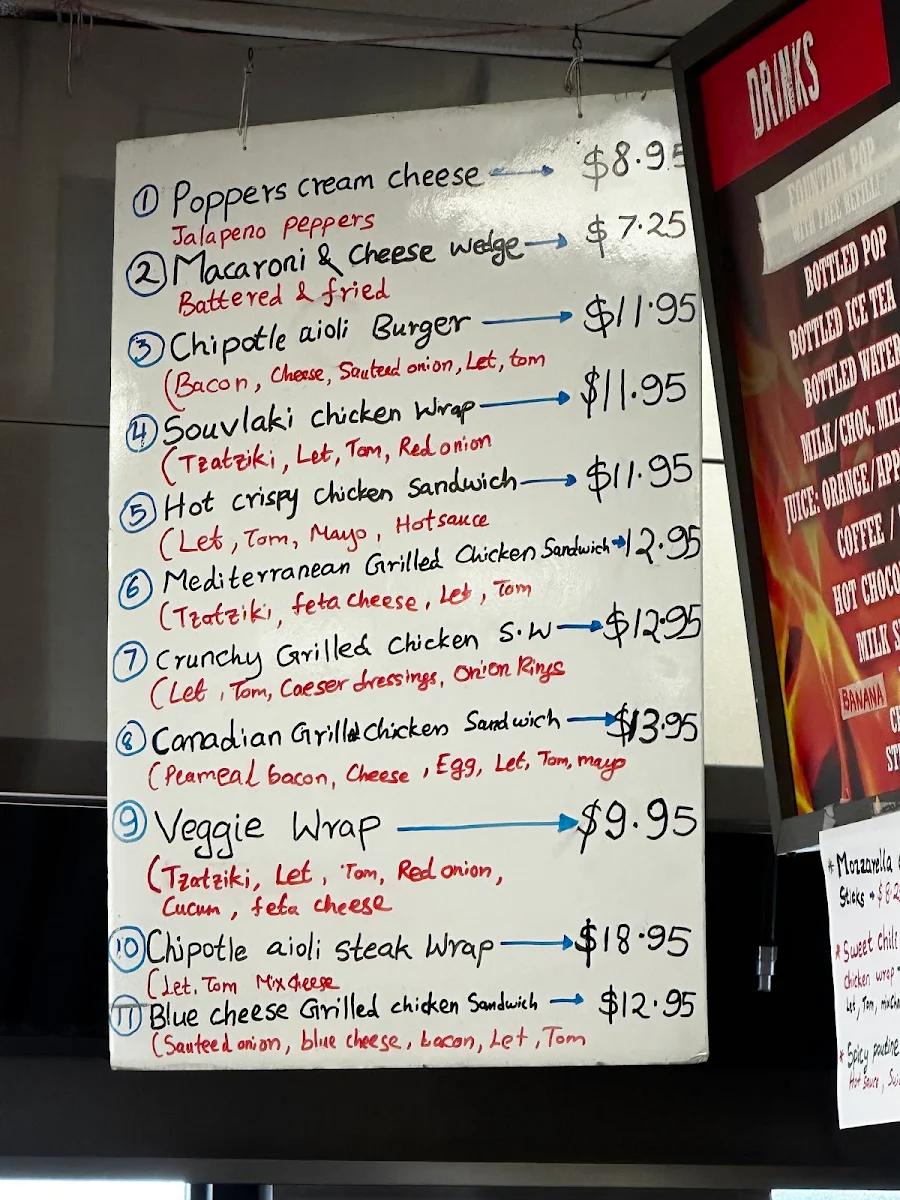 ① Poppers cream cheese → $8.95
Jalapeno peppers
② Macaroni & Cheese wedge → $7.25
Battered & fried
③ Chipotle aioli Burger → $11.95
(Bacon, Cheese, Sauteed onion, Let, tom
④ Souvlaki chicken Wrap → $11.95
(Tzatziki, Let, Tom, Red onion
⑤ Hot crispy chicken Sandwich → $11.95
(Let, Tom, Mayo, Hotsauce
⑥ Mediterranean Grilled Chicken Sandwich → 12.95
(Tzatziki, feta cheese, Let, Tom
⑦ Crunchy Grilled Chicken S.W → $12.95
(Let, Tom, Caeser dressings, Onion Rings
⑧ Canadian Grilled Chicken Sandwich → $13.95
(Peameal bacon, Cheese, Egg, Let, Tom, mayo
⑨ Veggie Wrap → $9.95
(Tzatziki, Let, Tom, Red onion,
Cucum, feta cheese
⑩ Chipotle aioli steak Wrap → $18.95
(Let. Tom Mix Cheese
⑪ Blue cheese Grilled chicken Sandwich → $12.95
(Sauteed onion, blue cheese, bacon, Let, Tom
DRINKS
FOUNTAIN POP
WITH FREE REFILL
BOTTLED POP
BOTTLED ICE TEA
BOTTLED WATER
MILK/CHOC. MIL
JUICE: ORANGE/APP
COFFEE /
HOT CHOCO
MILK S
BANANA
* Mozzarella
Sticks → $8.2
* Sweet chili
chicken wrap
Let, Tom,
* Spicy poutine
Hot sauce,